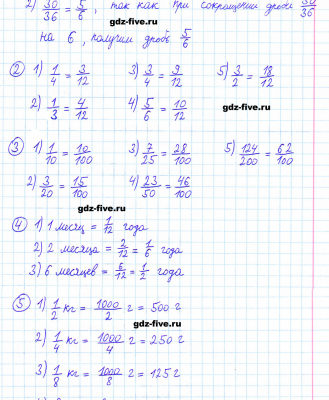 2) 30/36 = 5/6, так как при сокращении дроби 30/36
gdz-for.ru
на 6, получим дробь 5/6
② 1) 1/4 = 3/12 3) 3/4 = 9/12 5) 3/2 = 18/12
2) 1/3 = 4/12 4) 5/6 = 10/12
gdz-for.ru
③ 1) 1/10 = 10/100 3) 7/25 = 28/100 5) 124/200 = 62/100
2) 3/20 = 15/100 4) 23/50 = 46/100
gdz-for.ru
④ 1) 1 месяц = 1/12 года
2) 2 месяца = 2/12 = 1/6 года
3) 6 месяцев = 6/12 = 1/2 года
⑤ 1) 1/2 кг = 1000/2 г = 500 г
gdz-for.ru
2) 1/4 кг = 1000/4 г = 250 г
3) 1/8 кг = 1000/8 г = 125 г